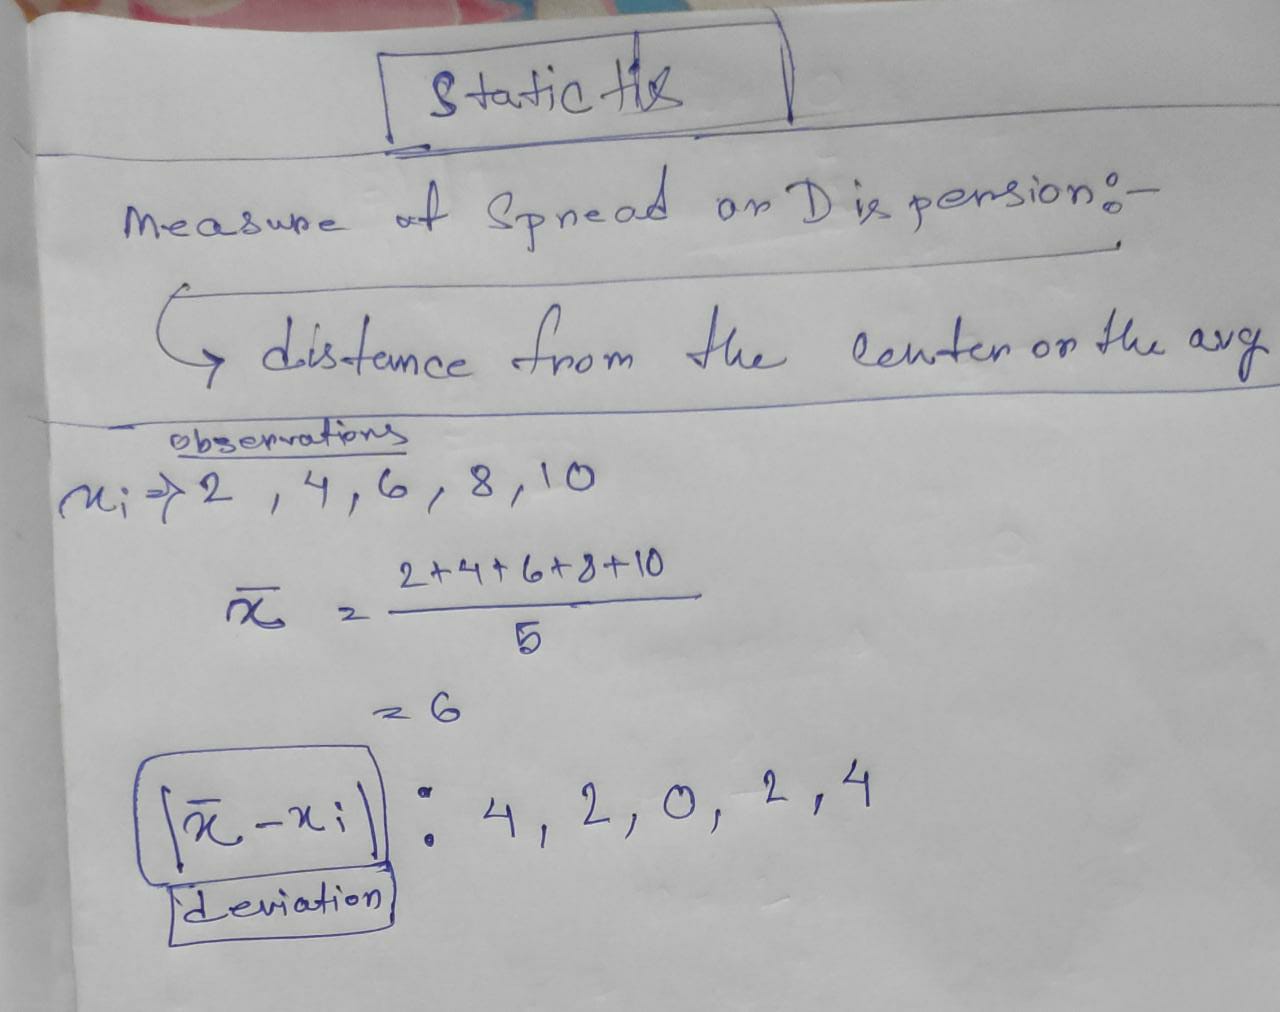 Staticths
Measure of Spread or Dispersion:-
↳ distance from the center or the avg
observations
xi ⇒ 2, 4, 6, 8, 10
x̄ = 2+4+6+8+10
5
= 6
|x̄ - xi| : 4, 2, 0, 2, 4
deviation